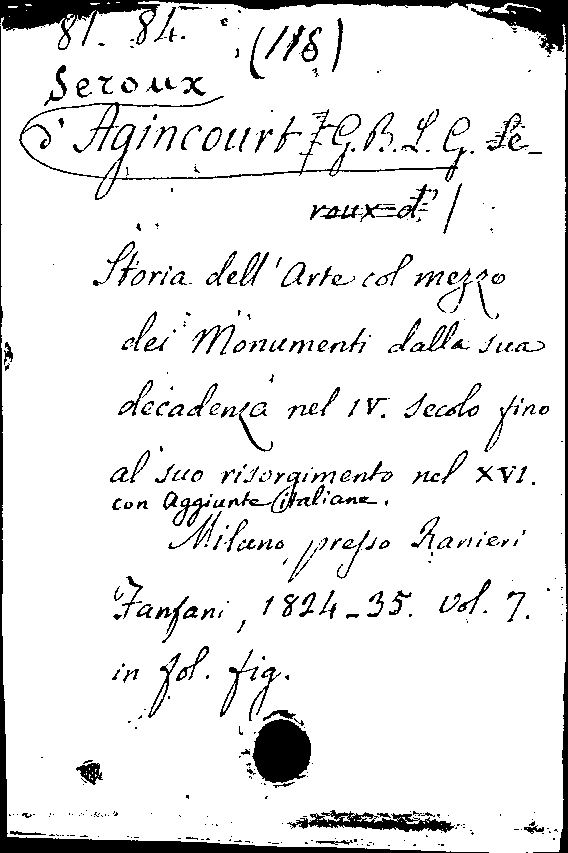 81. 84. (118)
Seroux
d'Agincourt G.B.L.G. Se-
roux d'
Storia dell'Arte col mezzo
dei Monumenti dalla sua
decadenza nel IV. secolo fino
al suo risorgimento nel XVI.
con Aggiunte italiane.
Milano, presso Ranieri
Fanfani, 1824-35. Vol. 7.
in fol. fig.